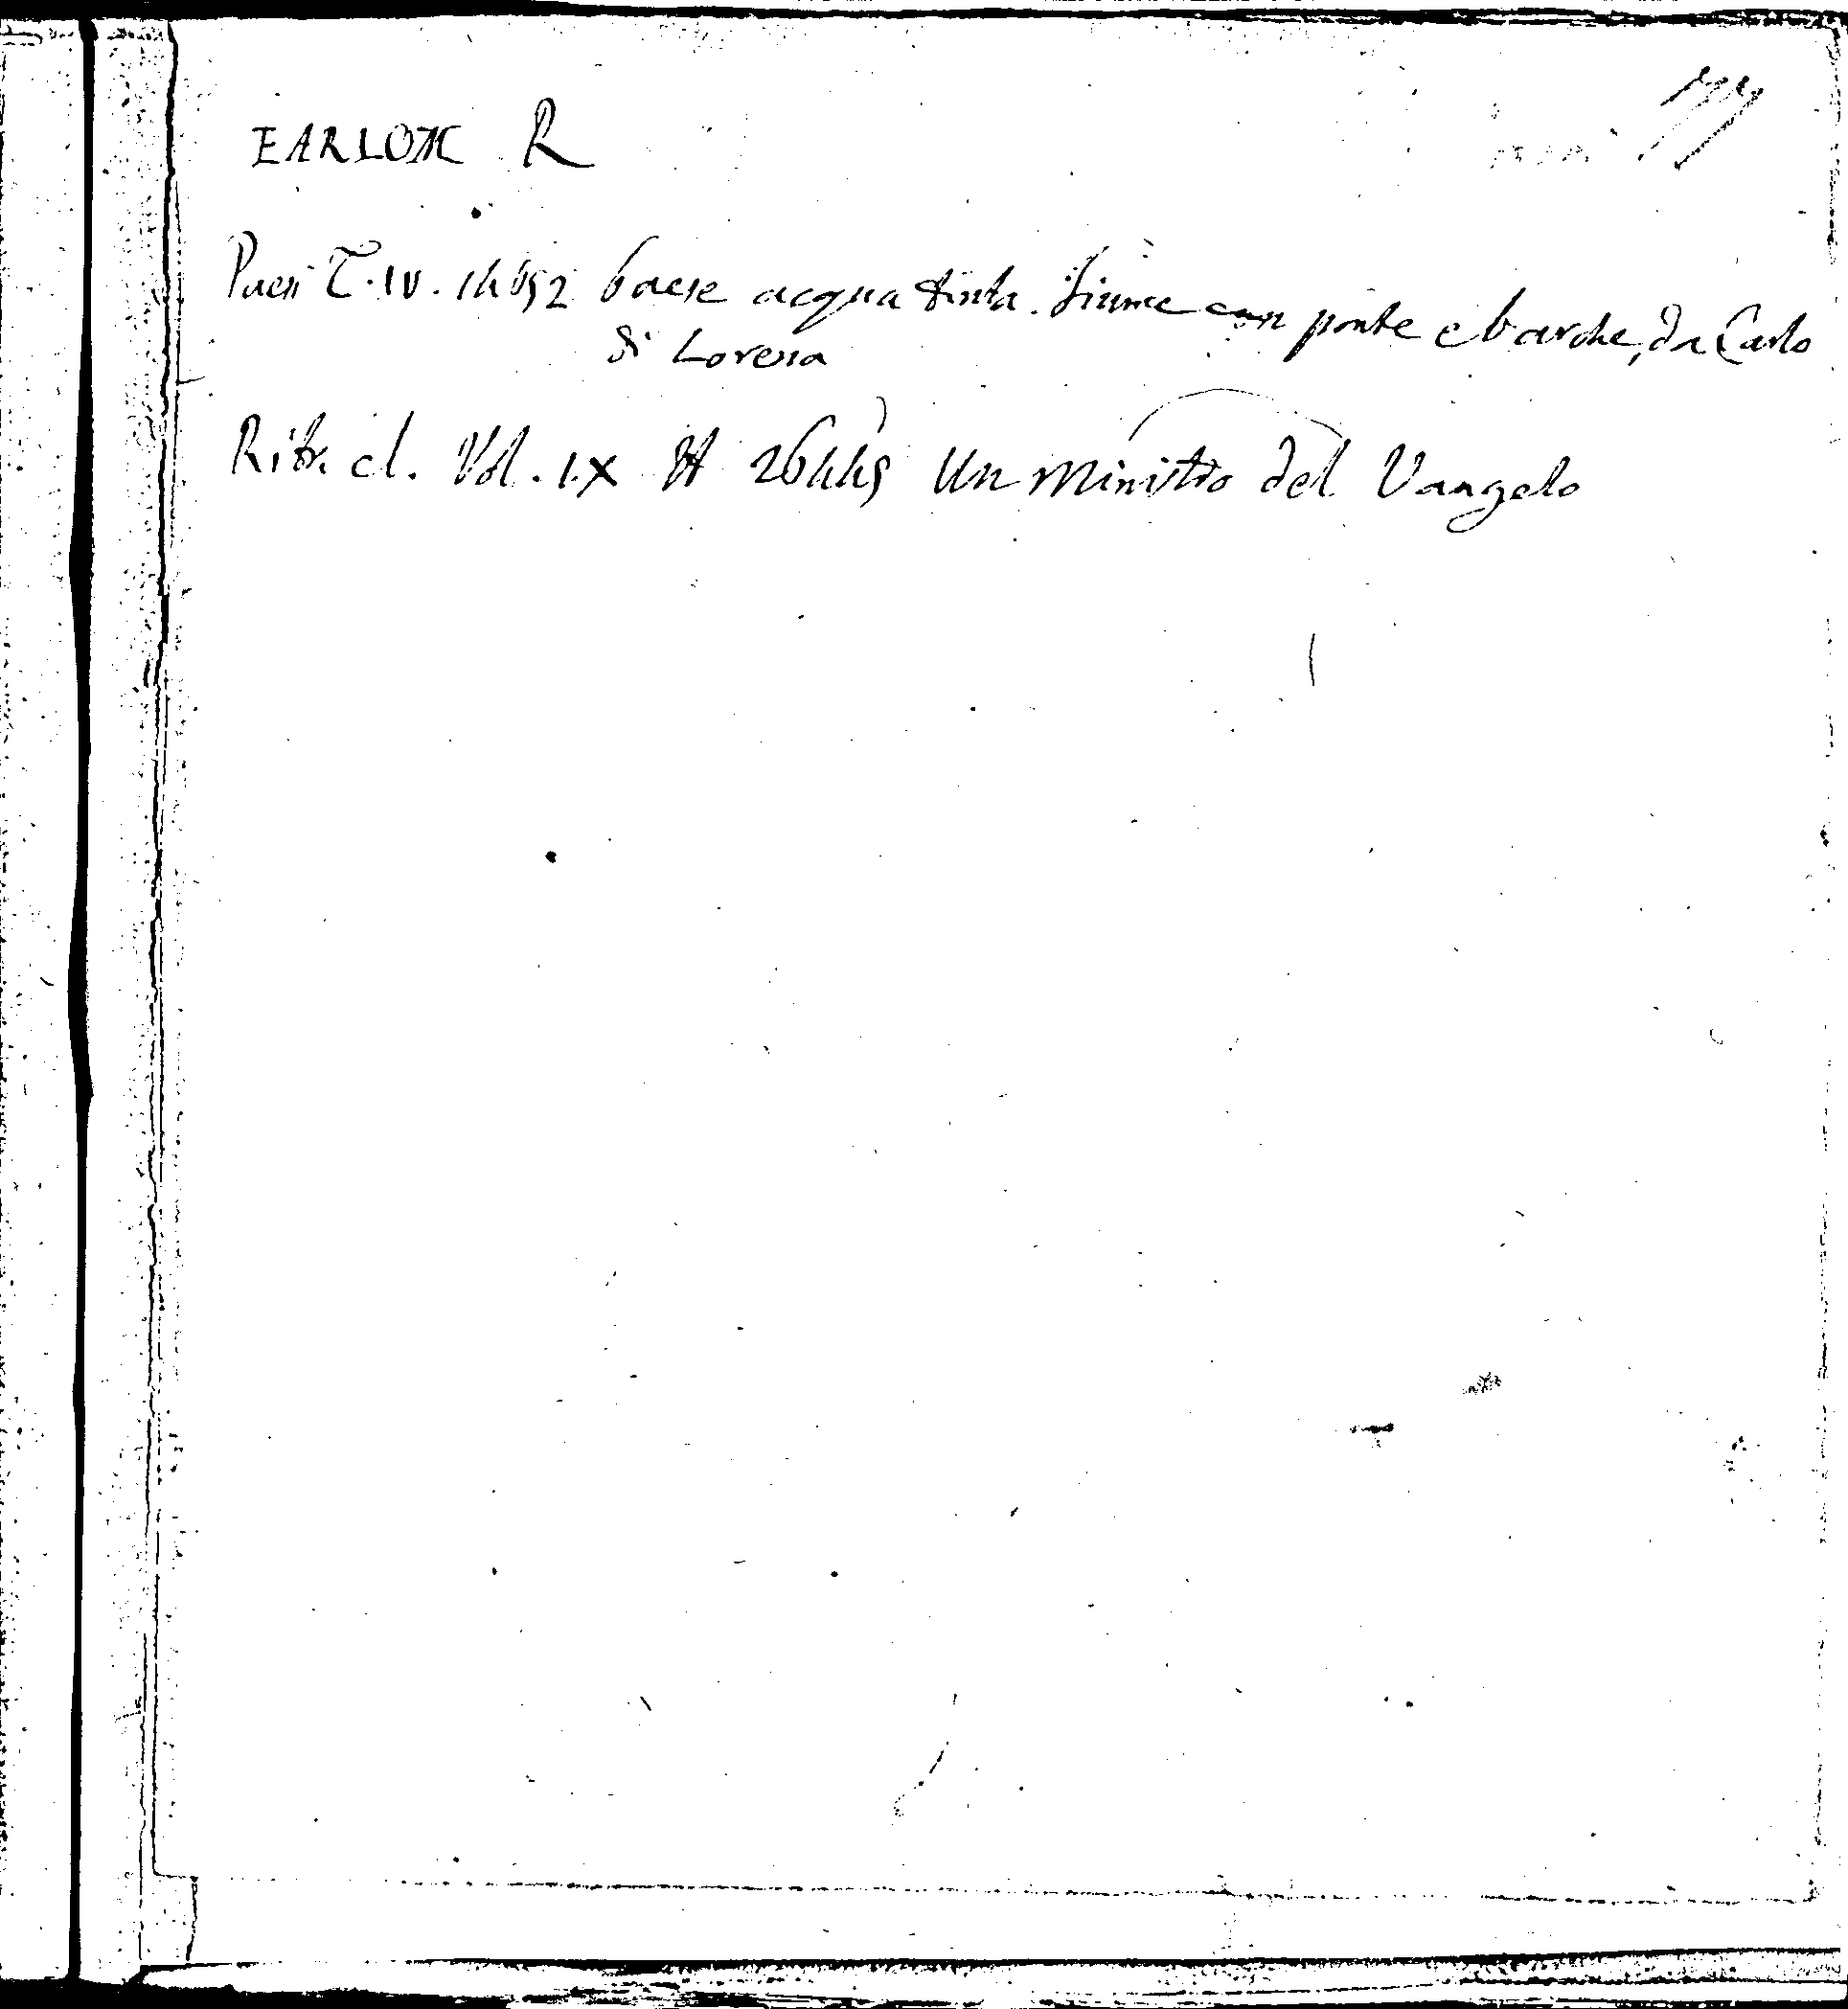 EARLOM R
Paesi T. IV. 14652 paese acqua tinta. Fiume con ponte e barche, da Carlo
di Lorena
Ritr. cl. Vol. IX 26445 Un Ministro del Vangelo